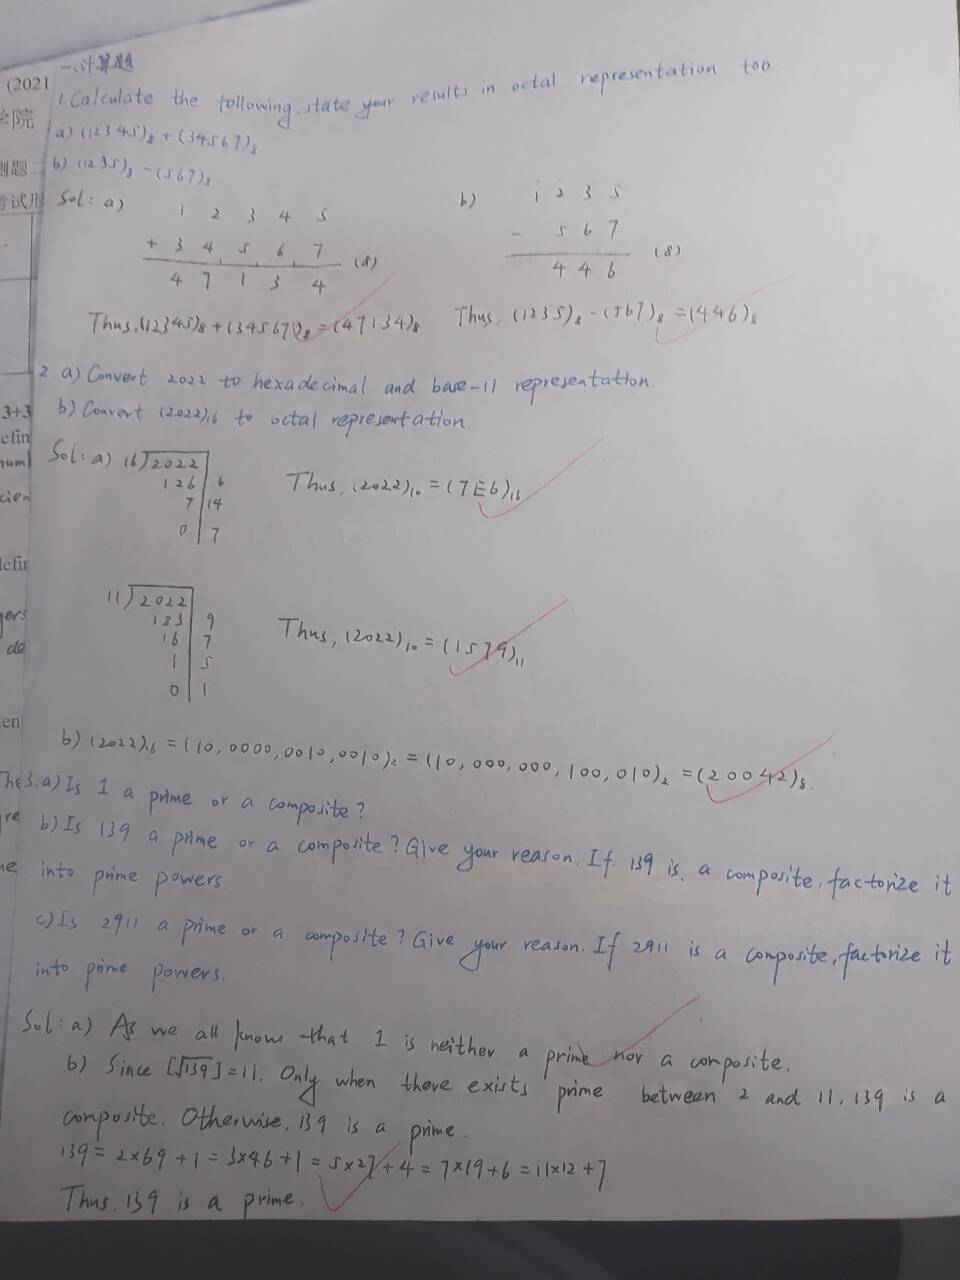 一、计算题
1. Calculate the following, state your results in octal representation too
a) (12345)₈ + (34567)₈
b) (1235)₈ - (567)₈
Sol: a) 1 2 3 4 5
+ 3 4 5 6 7 (8)
4 7 1 3 4
Thus, (12345)₈ + (34567)₈ = (47134)₈
b) 1 2 3 5
- 5 6 7 (8)
4 4 6
Thus, (1235)₈ - (567)₈ = (446)₈
2. a) Convert 2022 to hexadecimal and base-11 representation.
b) Convert (2022)₁₆ to octal representation.
Sol: a) 16)2022
126 6
7 14
0 7
Thus, (2022)₁₀ = (7E6)₁₆
11)2022
183 9
16 7
1 5
0 1
Thus, (2022)₁₀ = (1579)₁₁
b) (2022)₁₆ = (10,0000,0010,0010)₂ = (10,000,000,100,010)₂ = (20042)₈.
3. a) Is 1 a prime or a composite?
b) Is 139 a prime or a composite? Give your reason. If 139 is a composite, factorize it
into prime powers.
c) Is 2911 a prime or a composite? Give your reason. If 2911 is a composite, factorize it
into prime powers.
Sol: a) As we all know that 1 is neither a prime nor a composite.
b) Since [√139] = 11. Only when there exists prime between 2 and 11, 139 is a
composite. Otherwise, 139 is a prime.
139 = 2×69 + 1 = 3×46 + 1 = 5×27 + 4 = 7×19 + 6 = 11×12 + 7
Thus, 139 is a prime.
(2021
学院
试形
3+3
efin
num
cien
defin
gers
de
en
The
re
ne